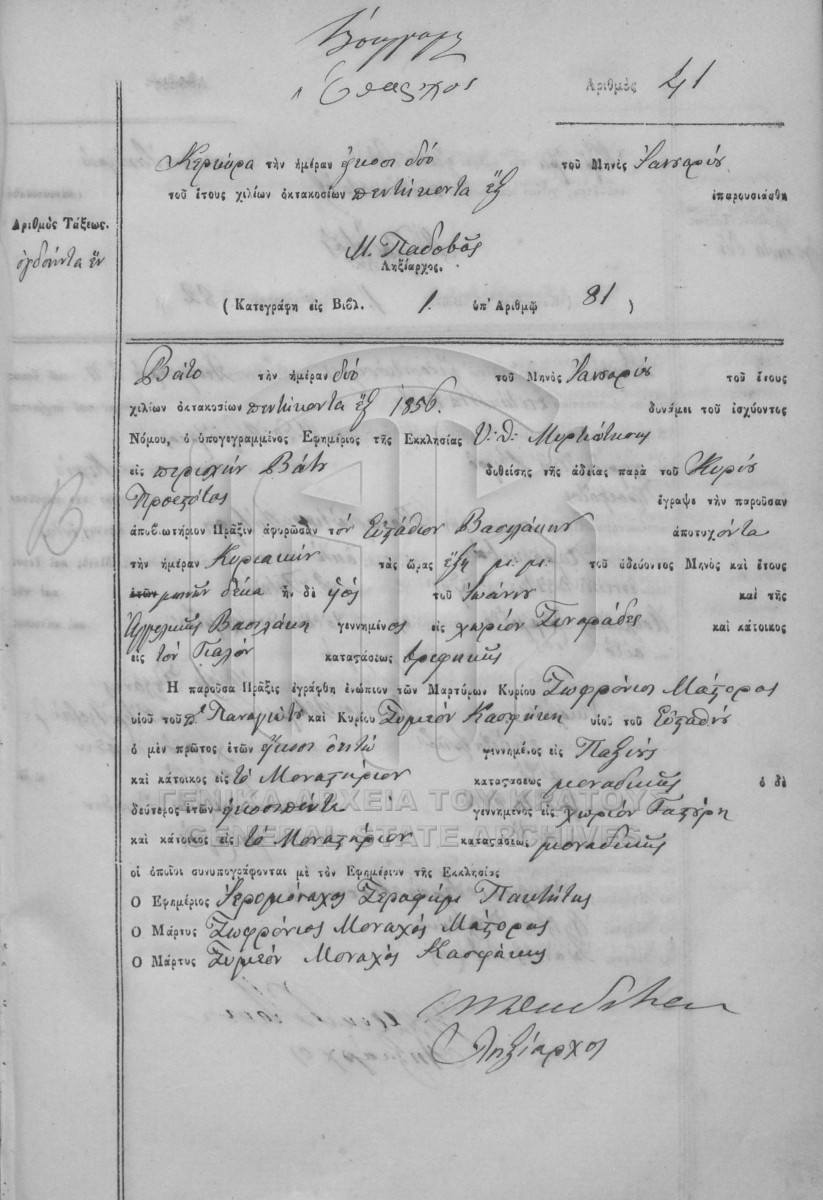 Ὁ Ἔπαρχος
Ἀριθμὸς 41
Κερκύρα τὴν ἡμέραν εἴκοσι δύο τοῦ Μηνὸς Ἰανουαρίου
τοῦ ἔτους χιλίων ὀκτακοσίων πεντήκοντα ἓξ ἐπαρουσιάσθη
Ἀριθμὸς Τάξεως.
ὀγδοήντα ἕν
Μ. Παδοβᾶς
Ληξίαρχος.
( Κατεγράφη εἰς Βιβλ. 1. ὑπ' Ἀριθμῷ 81 )
Βάτο τὴν ἡμέραν δύο τοῦ Μηνὸς Ἰανουαρίου τοῦ ἔτους
χιλίων ὀκτακοσίων πεντήκοντα ἓξ 1856. δυνάμει τοῦ ἰσχύοντος
Νόμου, ὁ ὑπογεγραμμένος Ἐφημέριος τῆς Ἐκκλησίας Υ: Θ: Μυρτιώτισης
εἰς περιοχὴν Βάτου δοθείσης τῆς ἀδείας παρὰ τοῦ Κυρίου
Προεστῶτος ἔγραψε τὴν παροῦσαν
ἀποβιωτήριον Πρᾶξιν ἀφορῶσαν τὸν Εὐστάθιον Βασιλάκην ἀποτυχόντα
τὴν ἡμέραν Κυριακὴν τὰς ὥρας ἕξη μ: μ: τοῦ ὁδεύοντος Μηνὸς καὶ ἔτους
ἐτῶν μηνῶν δέκα ἦν δὲ υἱὸς τοῦ Ἰωάννου καὶ τῆς
Ἀγγελικῆς Βασιλάκη γεννημένος εἰς χωρίον Σιναράδες καὶ κάτοικος
εἰς τὸν Γιαλὸν καταστάσεως βρεφικῆς
Ἡ παροῦσα Πρᾶξις ἐγράφθη ἐνώπιον τῶν Μαρτύρων Κυρίου Σωφρόνιος Μάστορας
υἱοῦ τοῦ π. Παναγιώτου καὶ Κυρίου Συμεὸν Κασφίκη υἱοῦ τοῦ Εὐσταθίου
ὁ μὲν πρῶτος ἐτῶν εἴκοσι ὀκτὼ γεννημένος εἰς Παξοὺς
καὶ κάτοικος εἰς τὸ Μοναστήριον καταστάσεως μοναδικῆς ὁ δὲ
δεύτερος ἐτῶν εἰκοσιπέντε γεννημένος εἰς χωρίον Γαστούρη
καὶ κάτοικος εἰς τὸ Μοναστήριον καταστάσεως μοναδικῆς
οἱ ὁποῖοι συνυπογράφονται μὲ τὸν Ἐφημέριον τῆς Ἐκκλησίας
Ὁ Ἐφημέριος Ἱερομόναχος Σεραφὴμ
Ὁ Μάρτυς Σωφρόνιος Μοναχὸς Μάστορας
Ὁ Μάρτυς Συμεὸν Μοναχὸς Κασφίκης
Ληξίαρχος
ΓΕΝΙΚΑ ΑΡΧΕΙΑ ΤΟΥ ΚΡΑΤΟΥΣ
GENERAL STATE ARCHIVES